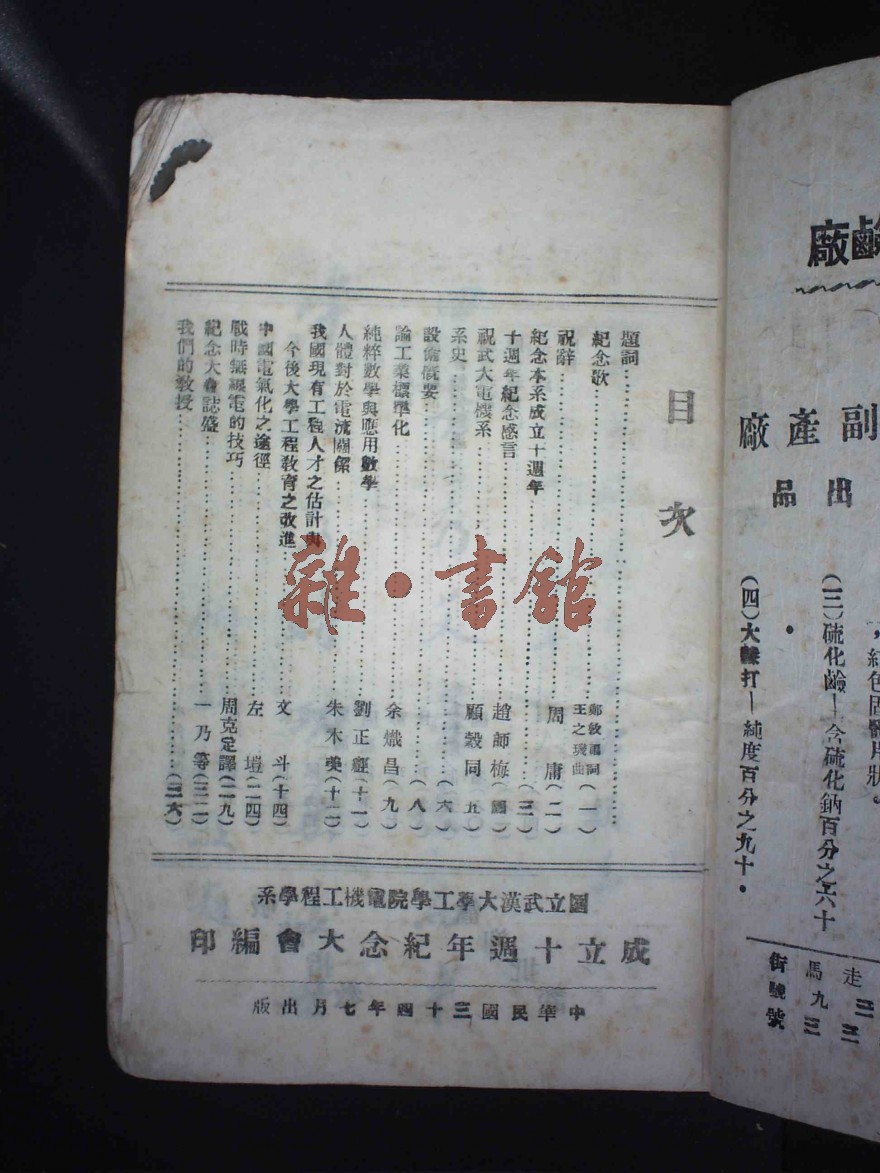 目次
題詞
紀念歌 鄭敦 詞 王之 曲 （一）
祝辭 周庸（二）
紀念本系成立十週年 （三）
十週年紀念感言 趙師梅（四）
祝武大電機系 顧穀同（五）
系史 （六）
設備概要 （八）
論工業標準化 余熾昌（九）
純粹數學與應用數學 劉正經（十一）
人體對於電流關係 朱木美（十二）
我國現有工程人才之估計與
今後大學工程敎育之改進 文斗（十四）
中國電氣化之途徑 左塏（二四）
戰時無綫電的技巧 周克定譯（二九）
紀念大會誌盛 一乃等（三二）
我們的敎授 （三六）
國立武漢大學工學院電機工程學系
成立十週年紀念大會編印
中華民國三十四年七月出版
鹼廠
副產廠
出品
，紅色固體片狀。
（三）硫化鹼—含硫化鈉百分之六十
。
（四）大蘇打—純度百分之九十。
走三三
馬九三
街號號
雜·書館